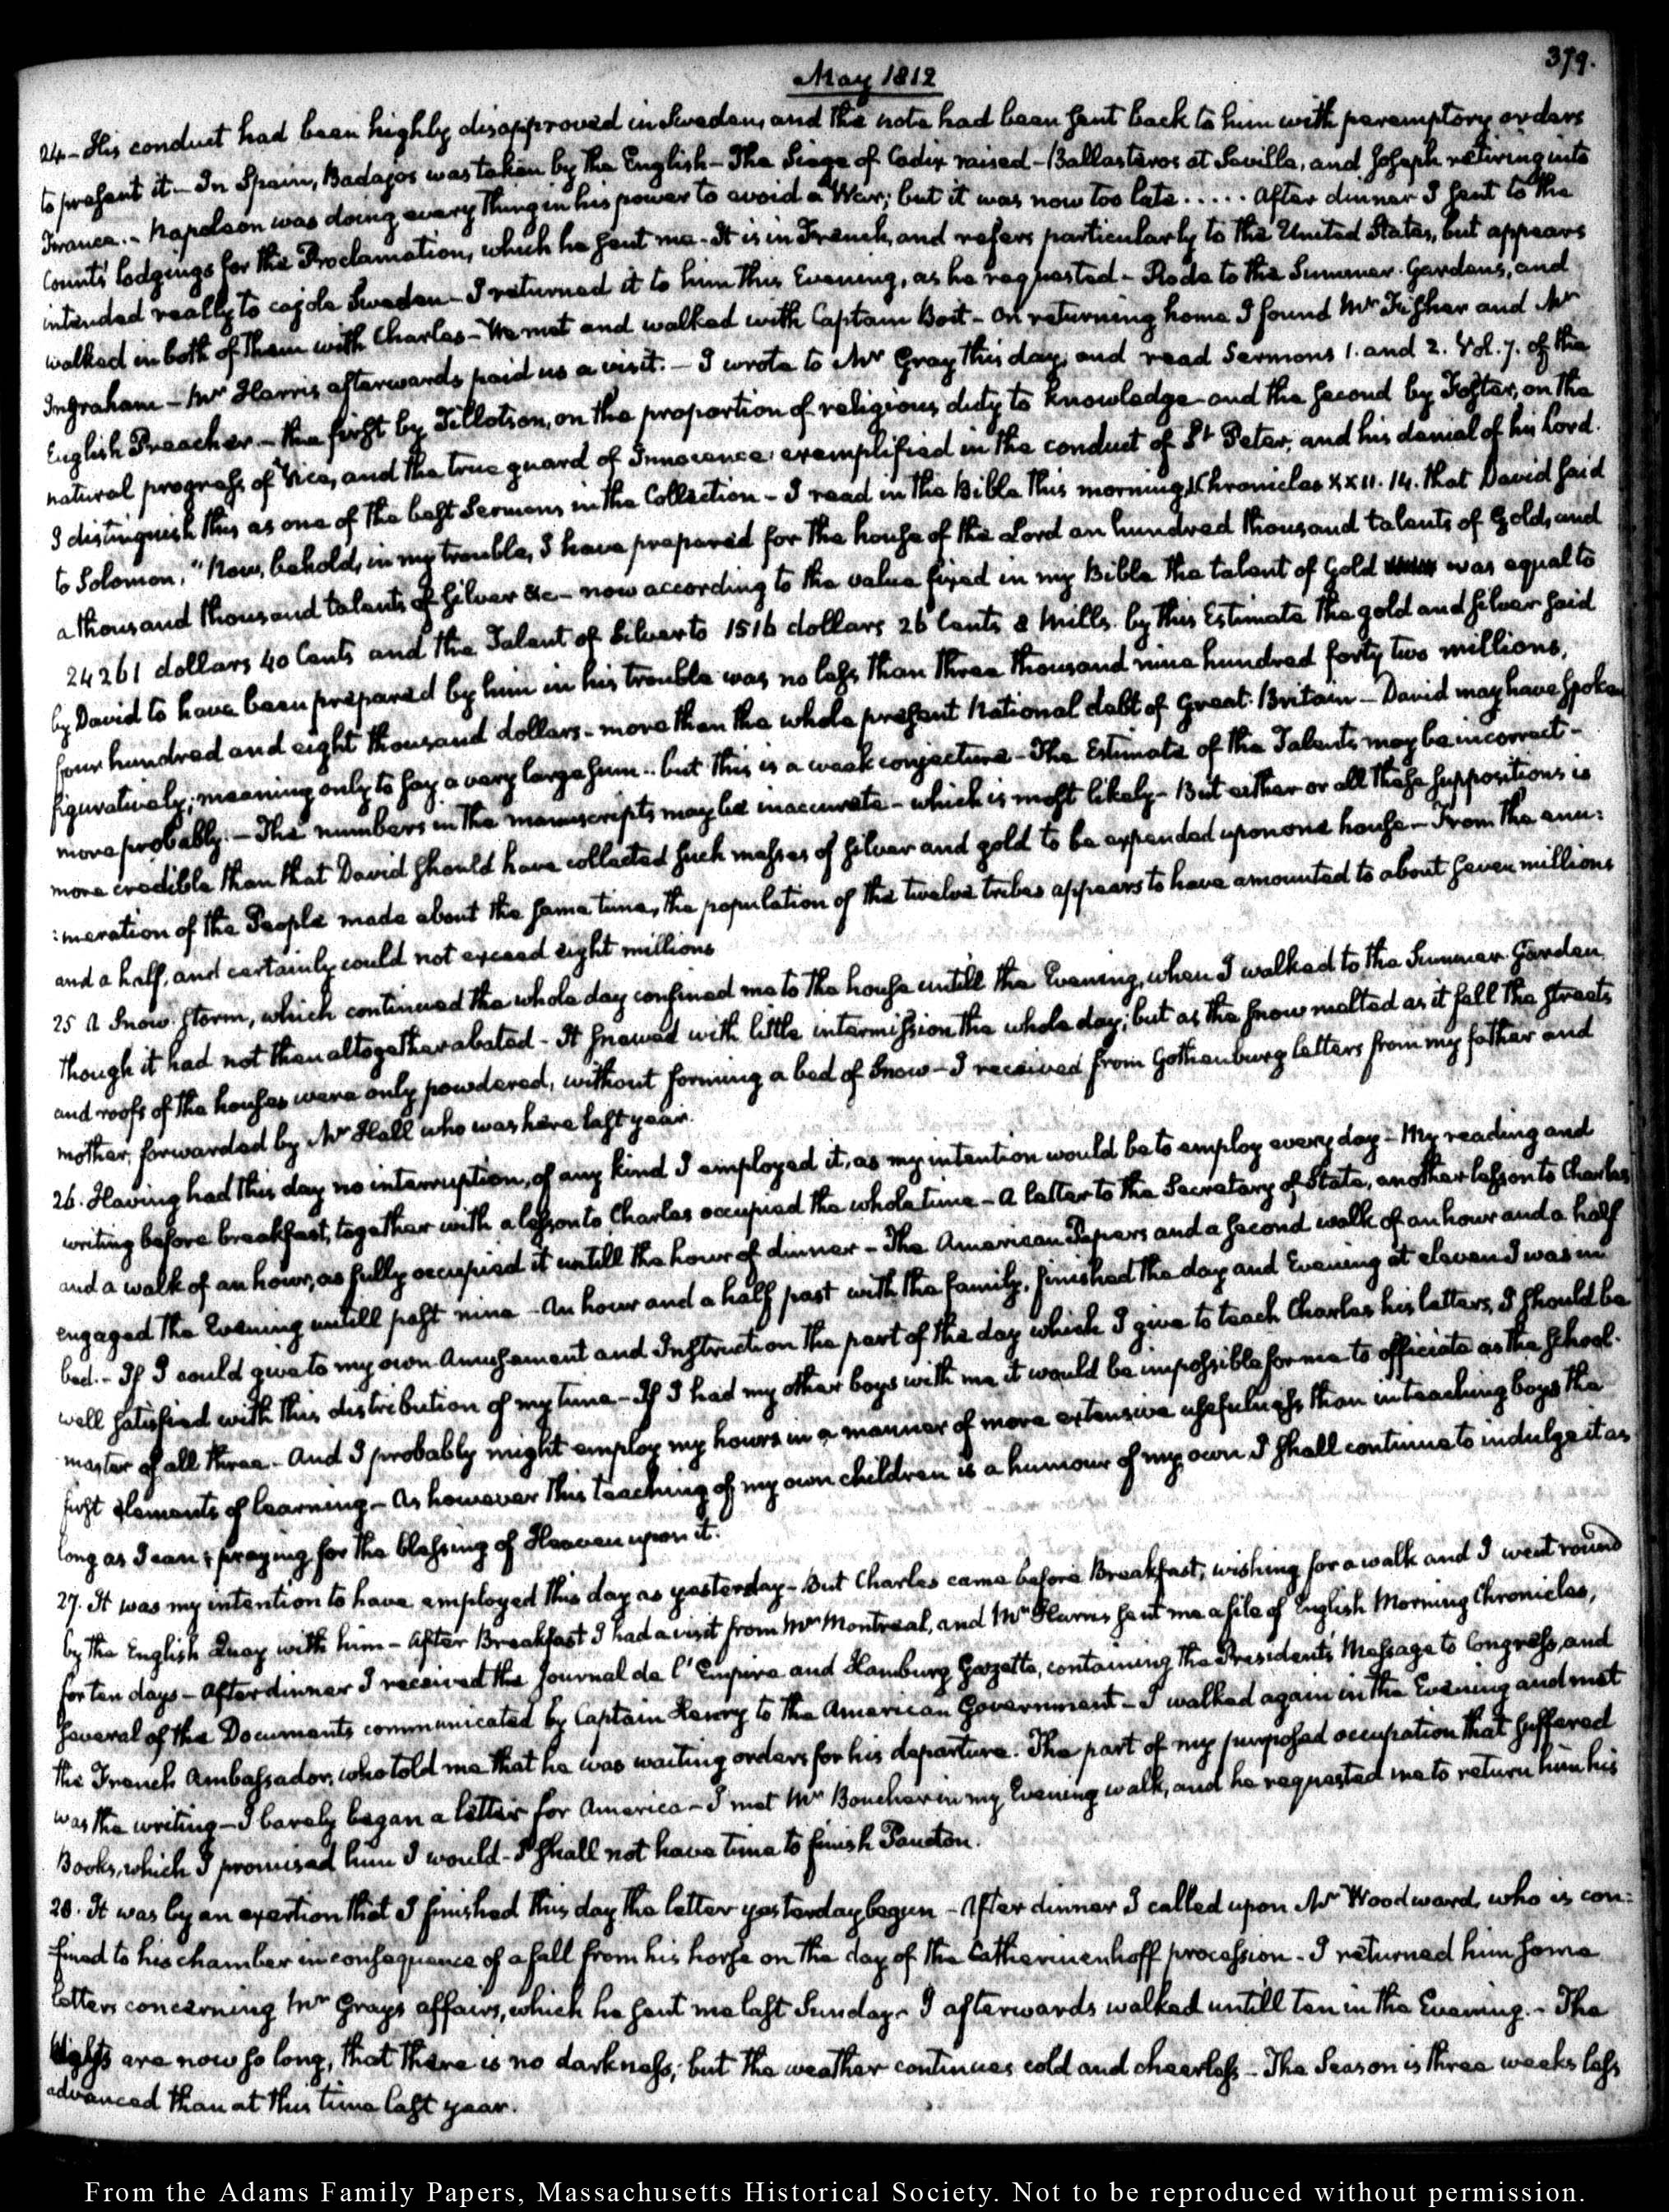 379.
May 1812
24 - His conduct had been highly disapproved in Sweden, and the note had been sent back to him with peremptory orders
to present it - In Spain, Badajos was taken by the English - The Siege of Cadix raised - Ballasteros at Sevilla, and Joseph retiring into
France. - Napoleon was doing every thing in his power to avoid a War; but it was now too late ..... After dinner I sent to the
Counts' lodgings for the Proclamation, which he sent me - It is in French, and refers particularly to the United States, but appears
intended really to cajole Sweden - I returned it to him this Evening, as he requested - Rode to the Summer-Gardens, and
walked in both of them with Charles - We met and walked with Captain Bott - On returning home I found Mr Fisher and Mr
Ingraham - Mr Harris afterwards paid us a visit. - I wrote to Mr Gray this day, and read Sermons 1. and 2. Vol. 7. of the
English Preacher - the first by Tillotson, on the proportion of religious duty to knowledge and the second by Foster, on the
natural progress of Vice, and the true guard of Innocence: exemplified in the conduct of St Peter, and his denial of his Lord.
I distinguish this as one of the best Sermons in the Collection - I read in the Bible this morning, 1 Chronicles XXII. 14. that David said
to Solomon, "Now, behold, in my trouble, I have prepared for the house of the Lord an hundred thousand talents of Gold, and
a thousand thousand talents of Silver &c - now according to the value fixed in my Bible the talent of Gold was equal to
24261 dollars 40 Cents and the Talent of Silver to 1516 dollars 26 Cents 2 Mills. by this Estimate the gold and silver said
by David to have been prepared by him in his trouble was no less than three thousand nine hundred forty two millions,
four hundred and eight thousand dollars - more than the whole present National debt of Great-Britain - David may have spoken
figuratively; meaning only to say a very large sum .. but this is a weak conjecture - The Estimate of the Talents may be incorrect -
more probably. - The numbers in the manuscripts may be inaccurate - which is most likely - But either or all these suppositions is
more credible than that David should have collected such masses of silver and gold to be expended upon one house - From the enu:
:meration of the People made about the same time, the population of the twelve tribes appears to have amounted to about seven millions
and a half, and certainly could not exceed eight millions
25 A Snow-storm, which continued the whole day confined me to the house untill the Evening, when I walked to the Summer-Garden
though it had not then altogether abated - It snowed with little intermission the whole day; but as the snow melted as it fell the streets
and roofs of the houses were only powdered, without forming a bed of Snow - I received from Gothenburg letters from my father and
mother, forwarded by Mr Hall who was here last year.
26. Having had this day no interruption, of any kind I employed it, as my intention would be to employ every day - My reading and
writing before breakfast, together with a lesson to Charles occupied the whole time - A letter to the Secretary of State, another lesson to Charles
and a walk of an hour, as fully occupied it untill the hour of dinner - The American Papers and a second walk of an hour and a half
engaged the Evening untill past nine - An hour and a half past with the family, finished the day and Evening at eleven I was in
bed. - If I could give to my own Amusement and Instruction the part of the day which I give to teach Charles his letters, I should be
well satisfied with this distribution of my time - If I had my other boys with me it would be impossible for me to officiate as the school-
master of all three - And I probably might employ my hours in a manner of more extensive usefulness than in teaching boys the
first elements of learning - As however this teaching of my own children is a humour of my own I shall continue to indulge it as
long as I can; praying for the blessing of Heaven upon it.
27. It was my intention to have employed this day as yesterday - But Charles came before Breakfast, wishing for a walk and I went round
by the English Quay with him - After Breakfast I had a visit from Mr Montreal, and Mr Harris sent me a file of English Morning Chronicles,
for ten days - After dinner I received the Journal de l'Empire and Hamburg Gazette, containing the President's Message to Congress, and
several of the Documents communicated by Captain Henry to the American Government - I walked again in the Evening and met
the French Ambassador, who told me that he was waiting orders for his departure. The part of my purposed occupation that suffered
was the writing - I barely began a letter for America - I met Mr Boucher in my Evening walk, and he requested me to return him his
Books, which I promised him I would - I shall not have time to finish Paucton.
28. It was by an exertion that I finished this day the letter yesterday begun - After dinner I called upon Mr Woodward, who is con:
fined to his chamber in consequence of a fall from his horse on the day of the Catherinenhoff procession - I returned him some
letters concerning Mr Grays affairs, which he sent me last Sunday - I afterwards walked untill ten in the Evening. - The
are now so long, that there is no darkness; but the weather continues cold and cheerless - The Season is three weeks less
advanced than at this time last year.
From the Adams Family Papers, Massachusetts Historical Society. Not to be reproduced without permission.